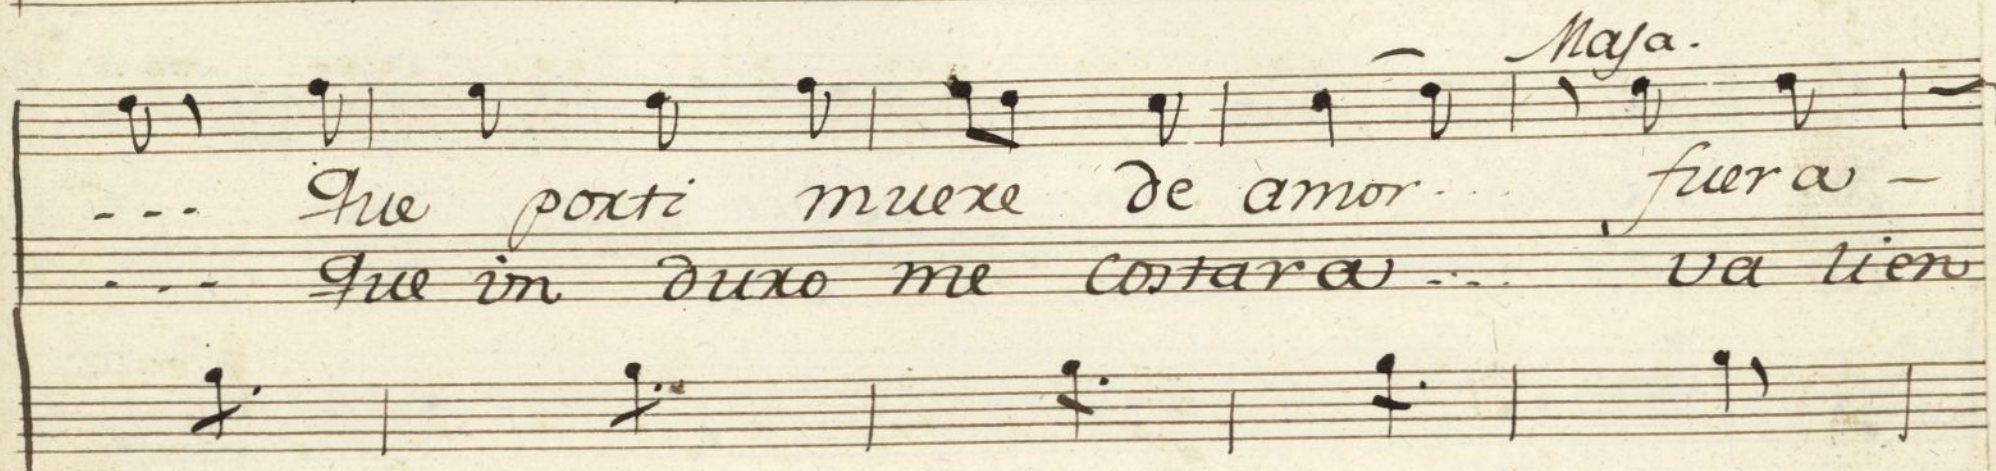 Maja.
--- Que porti muere de amor... fuera -
---- Que in duxo me costara... va lien